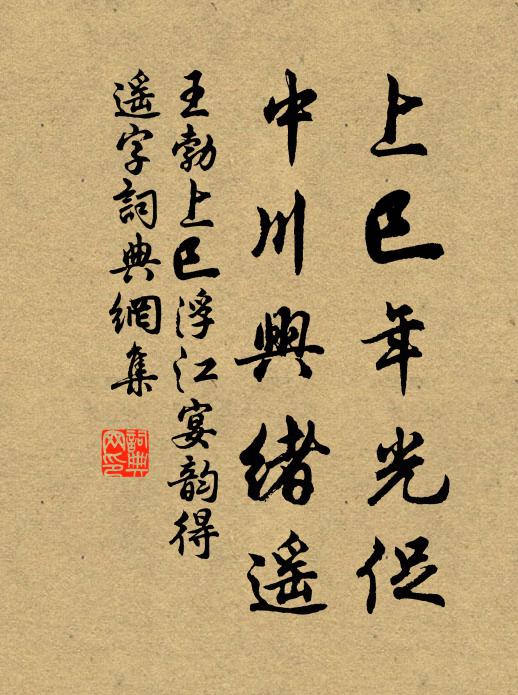 上巳年光促
中川興緒遥
王勃上巳浮江宴韵得
遥字詞典網集
詞典
网印